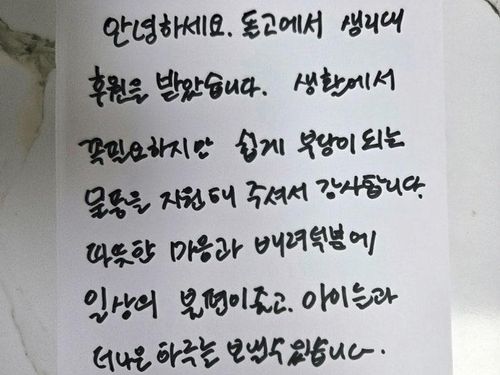 안녕하세요. 돈고에서 생리대
후원을 받았습니다. 생활에서
꼭필요하지만 쉽게 부담이 되는
물품을 지원해 주셔서 감사합니다.
따뜻한 마음과 배려덕분에
일상의 불편이줄고. 아이들과
더나은 하루를 보낼수있습니다.